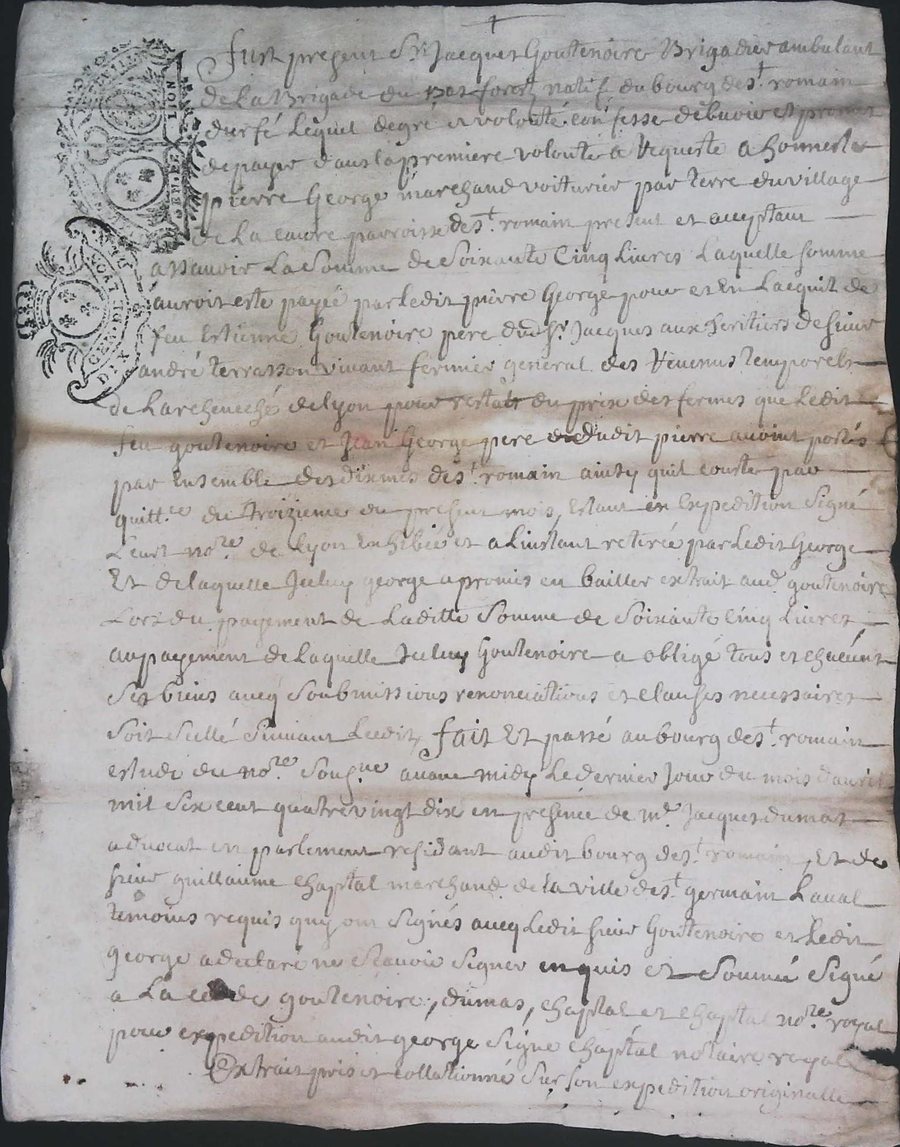 GENERALITE DE LYON
GEN. DE LYON
DIX DEN.
Fust present Sr. Jacques Goutenoire Brigadier ambulant
de La Brigade du bas forez natif du bourg de st. romain
durfé Lequel de gré et volonté confesse debuoir et promet
de payer dans la premiere volonté & requeste a honneste
pierre George marchand voiturier par terre du village
de La parroisse de st. romain present et acceptant
assauoir La Somme de Soixante Cinq Liures Laquelle somme
auroit esté payée par Ledit pierre George pour et En Lacquit de
feu Estienne Goutenoire pere dud. Sr. Jacques aux heritiers de sieur
andré terrasson viuant fermier general des Reuenus temporels
de Larcheuesché de lyon pour restat du prix des fermes que Ledit
feu goutenoire et Jean George pere dudit pierre auoint portés
par Ensemble des dixmes de st. romain ainsy quil conste par
quittce du troizieme du present mois, Estant en Expedition Signé
nore. de Lyon Exhibée et a Linstant retirée par Ledit George
Et de laquelle Jceluy george a promis en bailler extrait aud. goutenoire
Lors du payement de Laditte Somme de Soixante cinq Liures
au payement de Laquelle Jceluy Goutenoire a obligé tous et chacuns
Ses biens aueq Soubmissions renonciations et clauses necessaires
Soit Scellé Suiuant Ledit, fait Et passé au bourg de st. romain
estude du nore. Sougne auant midy Le dernier Jour du mois dauril
mil Six cent quatre vingt dix en presence de me. Jacques dumas
aduocat en parlement residant audit bourg de st. romain, Et de
sieur guillaume Chaptal marchand de la ville de st. germain Laual
temoins requis quy ont Signés aueq Ledit sieur Goutenoire et Ledit
george a declaré ne Scauoir Signer enquis et Sommé Signé
a La cedde goutenoire, dumas, Chaptal et Chaptal nore. royal
pour expedition audit george Signé Chaptal notaire royal
Extrait pris et collationné Sur Son expedition originalle